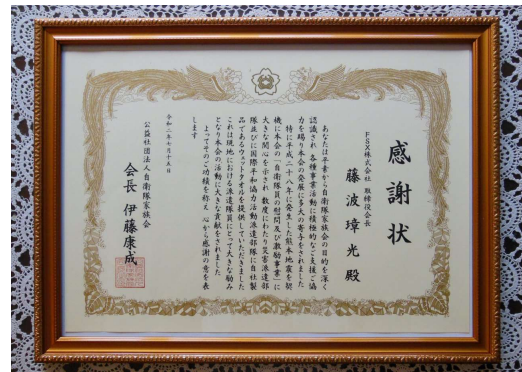 感謝状
FSX株式会社 取締役会長
藤波璋光殿
あなたは平素から自衛隊家族会の目的を深く
認識され 各種事業活動に積極的なご支援ご協
力を賜り本会の発展に多大の寄与をされました
特に平成二十八年に発生した熊本地震を契
機に本会の「自衛隊員の慰問及び激励事業」に
大きな関心を示され 数度にわたり災害派遣部
隊並びに国際平和協力活動派遣部隊に自社製
品であるウェットタオルを提供していただきました
これは現地における派遣隊員にとって大きな励み
となり本会の活動に大きな貢献をされました
よってそのご功績を称え 心から感謝の意を表
します
令和二年七月十五日
公益社団法人自衛隊家族会
会長 伊藤康成